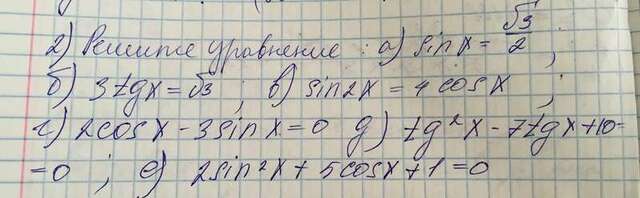 2) Решите уравнение : а) sinx = √3/2 ;
б) 3tgx = √3 ; в) sin2x = 4cosx ;
г) 2cosx - 3sinx = 0 д) tg²x - 7tgx + 10 =
= 0 ; е) 2sin²x + 5cosx + 1 = 0